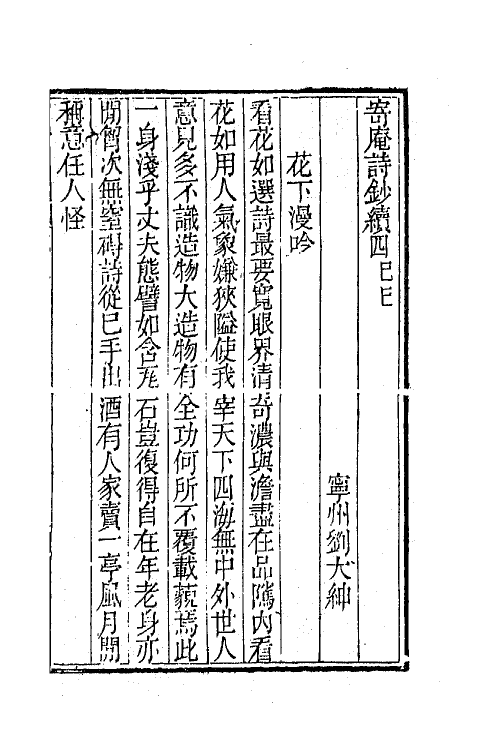 寄庵詩鈔續四己巳
寧州劉大紳
花下漫吟
看花如選詩最要寬眼界清奇濃與澹盡在品隲內看
花如用人氣象嫌狹隘使我宰天下四海無中外世人
意見多不識造物大造物有全功何所不覆載藐焉此
一身淺乎丈夫態譬如含瓦石豈復得自在年老身亦
閒曾次無罣碍詩從己手出酒有人家賣一亭風月開
稱意任人怪